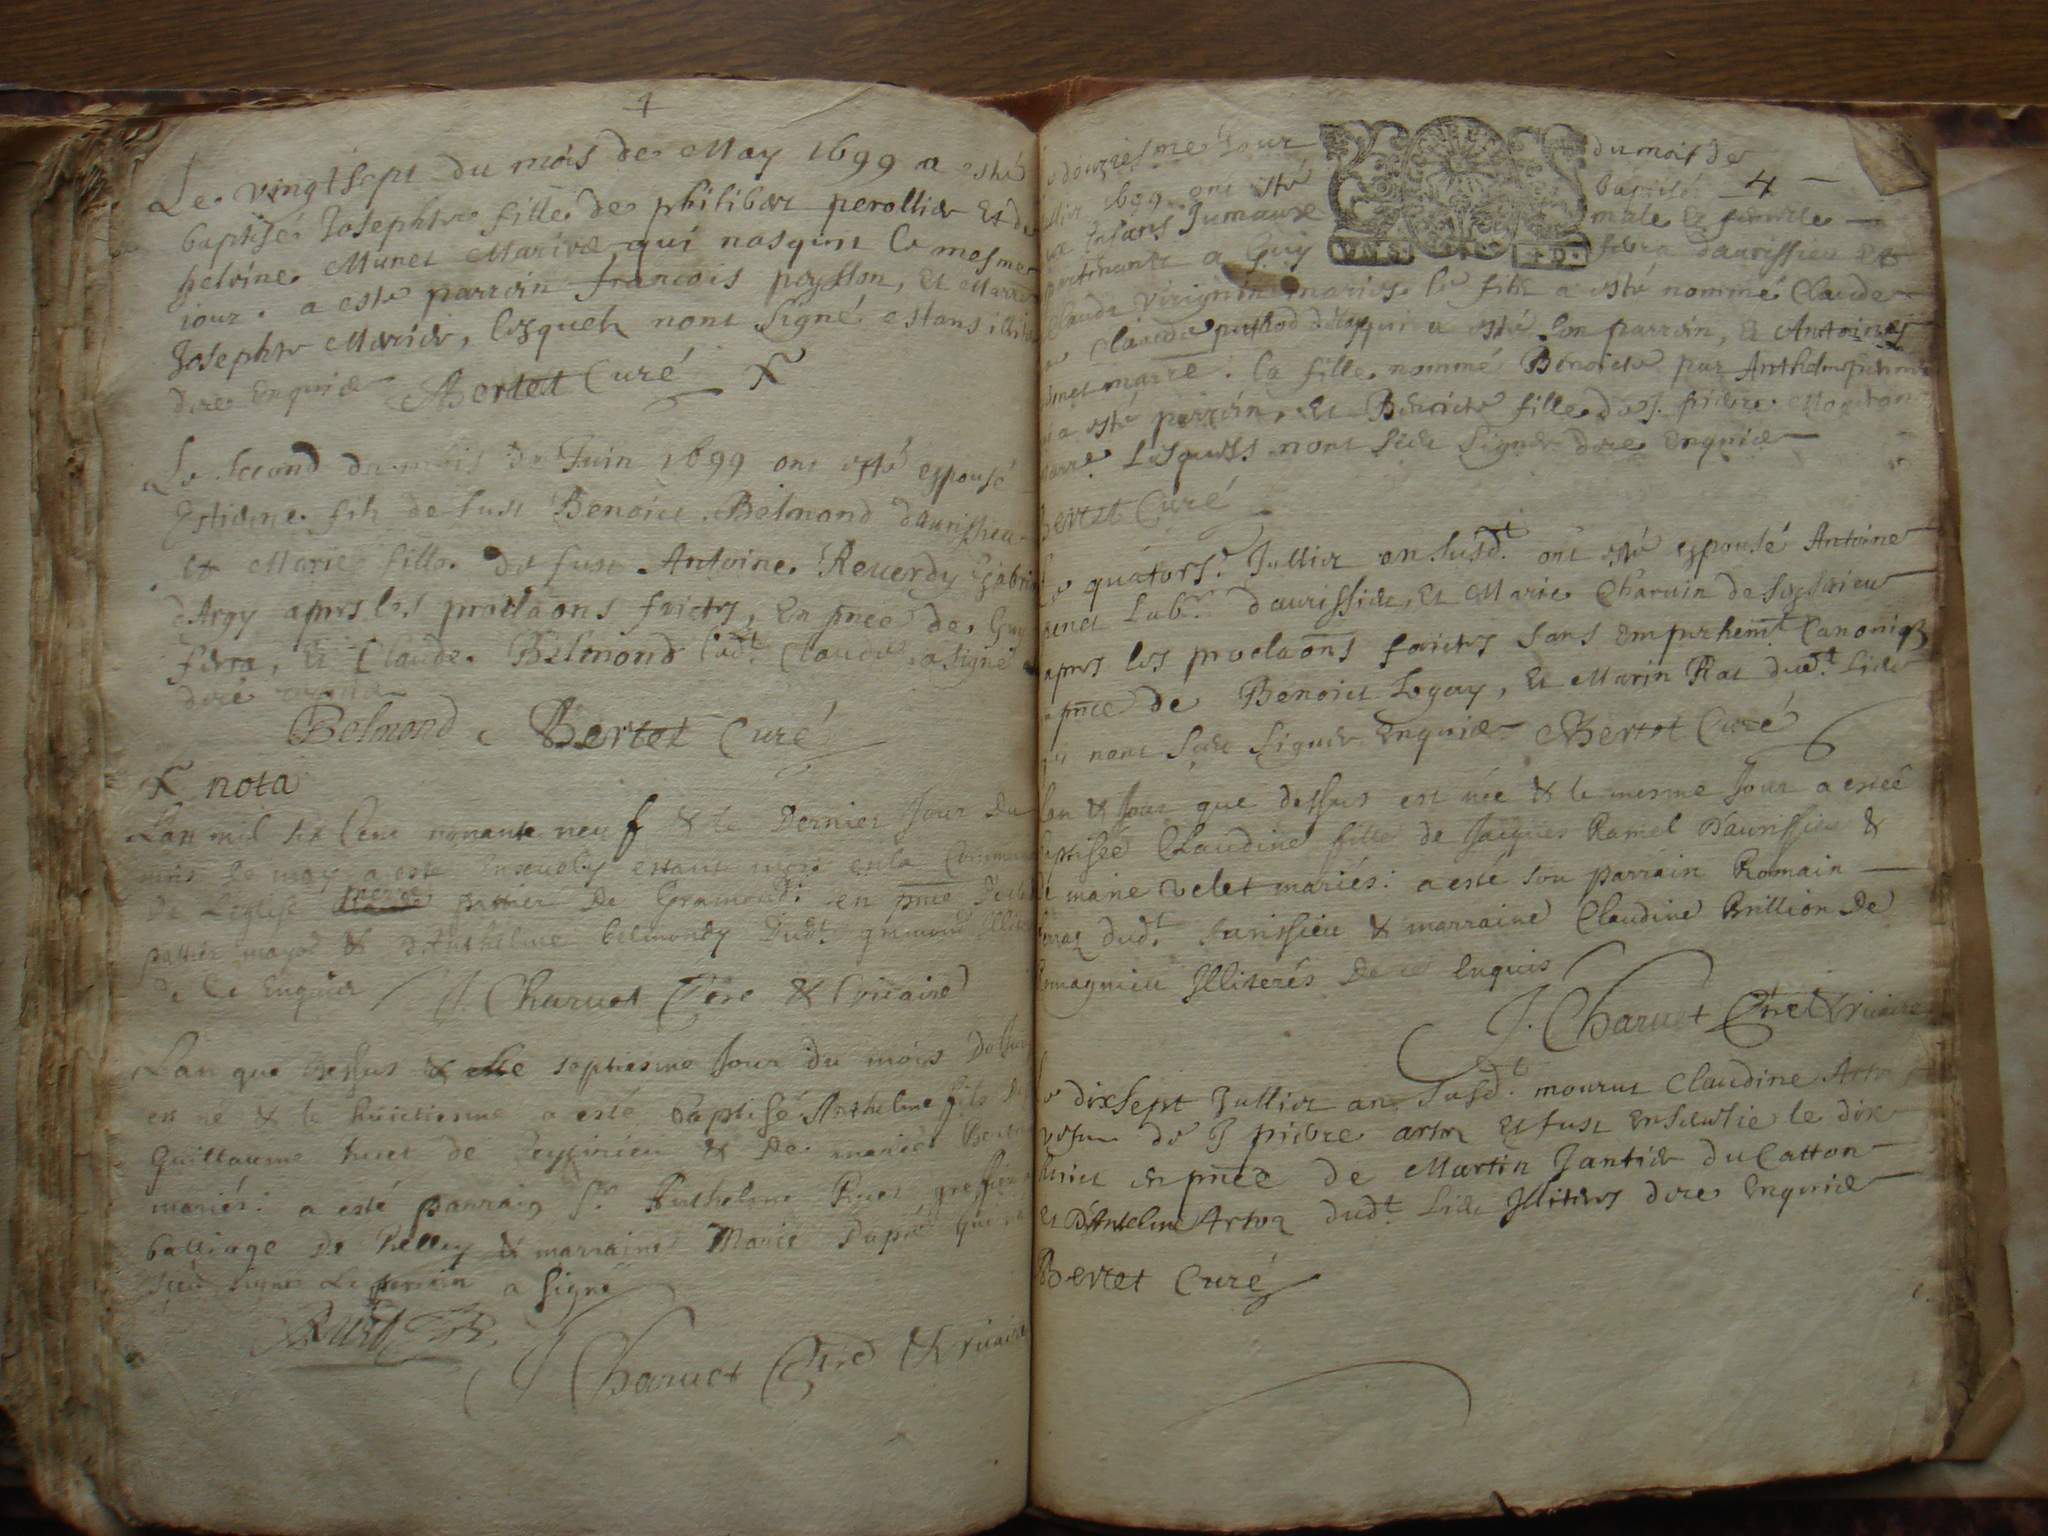 4
Le vingtsept du mois de May 1699 a esté
baptisé Josephte fille de philibert perollier Et de
helvine Munet Mariez qui nasquit le mesme
iour. a esté parroin francois peysson, Et Marre
Josephte Marier, lesquels nont signé estans illite
dere Enquis Bertet Curé X
Le second du mois de Juin 1699 ont esté espousé
Estienne fils de fust Benoict Belmond daurissieu
et Marie fille de fust Antoine Reuerdy
dArgy apres les proclaons faictes, En pnce de Guy
fera, Et Claude Belmond ladt Claude a signé
dere enquis
Belmond Bertet Curé
X nota
Lan mil six Cent nonante neuf & le Dernier Jour Du
mois de may a esté Enseuely estant mort en la Commun
De Leglise pattier De Gramond en pnce
pattier mayor & dAnthelme belmondy Dudt gramond Illite
De Ce Enquis J. Charuet Ptre & vicaire
Lan que dessus & le septiesme Jour Du mois Dessus
est né & le huictiesme a esté Baptisé Anthelme fils De
Guillaume huet de Ceyzirieu & De
mariés: a esté parrain Sr Anthelme Ruet greffier
balliage de Belley & marraine Marie Dupré qui na
sceu signer Le parrain a signé
Ruet
J Charuet Ptre & vicaire
douziesme Jour du mois de
1699 ont esté baptisé 4
Enfans Jumaux male et femelle
apartenants a Guy fera daurissieu Et
Claude Virignin maries le fils a esté nommé Claude
Claude puthod qui a esté son parroin, et Antoine
munet marre. la fille nommé Benoicte par Anthelme
a esté parroin, Et Benoicte fille de J. pierre
marre Lesquels nont sceu signer dere Enquis
Bertet Curé
Le quators.e Jullier an susd.t ont esté espousé Antoine
Lab.r daurissieu, Et Marie Charuin de Seyssieu
apres les proclaons faictes sans empeschemt Canoniq
pnce de Benoict Legay, Et Marin Rat dud.t Lieu
qui nont sceu signer Enquis Bertet Curé
Lan & Jour que dessus est née & le mesme Jour a estée
baptisée Claudine fille de Jacques Ramel Daurissieu &
de marie velet mariés: a esté son parrain Romain
dud.t aurissieu & marraine Claudine Brillion De
Illiterés De ce Enquis
J. Charuet Ptre & vicaire
Le dixsept Jullier an susd.t mourut Claudine Artor
vefue de J pierre artor Et fust Enseuelie le dix
huict en pnce de Martin Jantier du Catton
Et DAntelme Artor dud.t Lieu Illiteres dere Enquis
Bertet Curé